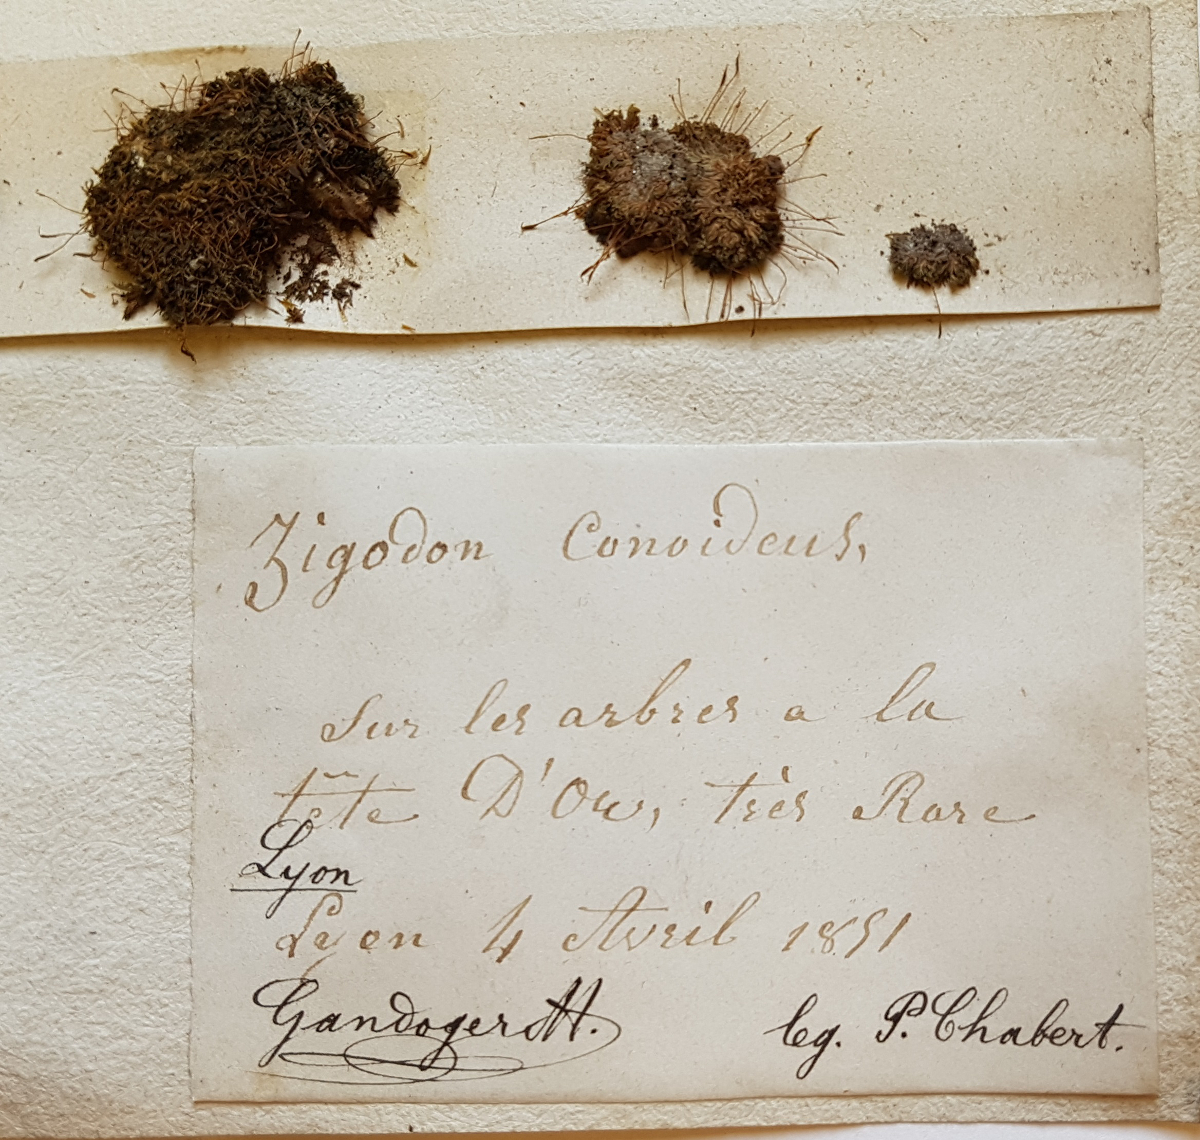 Zigodon Conoideus,
Sur les arbres a la
tête D'Or, très Rare
Lyon
Lyon 4 Avril 1851
Gandoger M.
leg. P. Chabert.